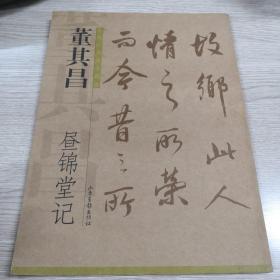 董其昌
昼锦堂记
故鄉此人
情之所榮
而今昔之所